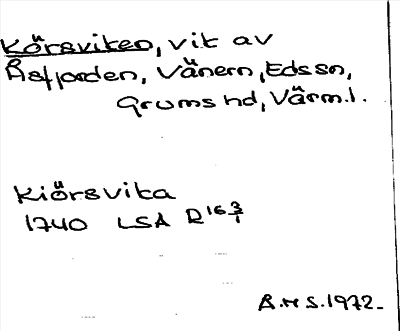 Körsviken, vik av
Åsfjorden, Vänern, Edssn,
Grums hd, Värml.
Kiörsvika
1740 LSA R16 3/1
B.M S.1972.